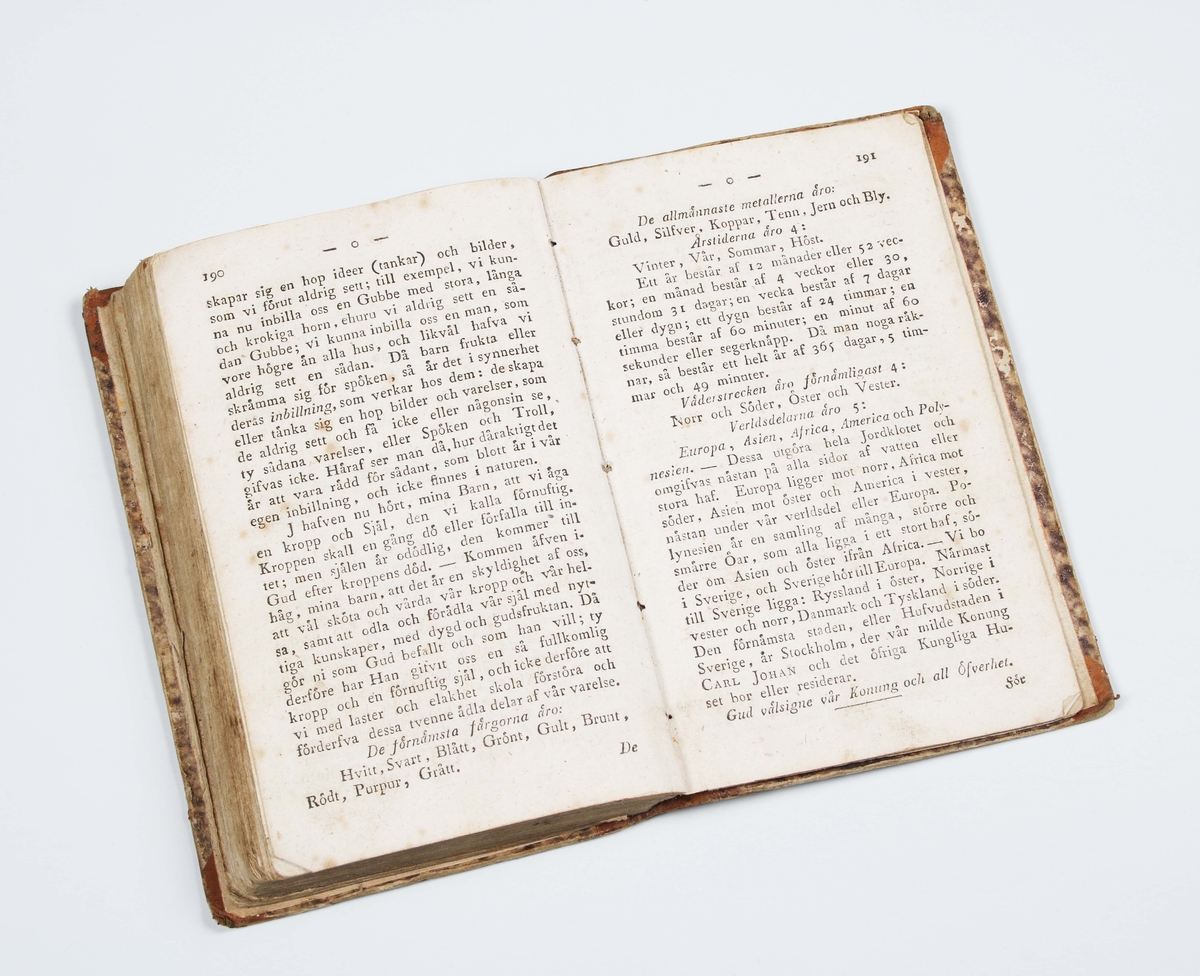 — o —
190
skapar sig en hop ideer (tankar) och bilder,
som vi förut aldrig sett; till exempel, vi kun-
na nu inbilla oss en Gubbe med stora, långa
och krokiga horn, ehuru vi aldrig sett en så-
dan Gubbe; vi kunna inbilla oss en man, som
vore högre än alla hus, och likväl hafva vi
aldrig sett en sådan. Då barn frukta eller
skråmma sig för spöken, så är det i synnerhet
deras inbillning, som verkar hos dem: de skapa
eller tänka sig en hop bilder och varelser, som
de aldrig sett och få icke eller någonsin se,
ty sådana varelser, eller Spöken och Troll,
gifvas icke. Häraf ser man då, hur däraktigt det
är att vara rådd för sådant, som blott är i vår
egen inbillning, och icke finnes i naturen.
J hafven nu hört, mina Barn, att vi äga
en kropp och Själ, den vi kalla förnuftig.
Kroppen skall en gång dö eller förfalla till in-
tet; men själen är odödlig, den kommer till
Gud efter kroppens död. — Kommen äfven i-
håg, mina barn, att det är en skyldighet af oss,
att väl sköta och vårda vår kropp och vår hel-
sa, samt att odla och förädla vår själ med nyt-
tiga kunskaper, med dygd och gudsfruktan. Då
gör ni som Gud befallt och som han vill; ty
derföre har Han gifvit oss en så fullkomlig
kropp och en förnuftig själ, och icke derföre att
vi med laster och elakhet skola förstöra och
förderfva dessa tvenne ädla delar af vår varelse.
De förnämsta färgorna äro:
Hvitt, Svart, Blått, Grönt, Gult, Brunt,
Rödt, Purpur, Grått.
De
191
— o —
De allmännaste metallerna äro:
Guld, Silfver, Koppar, Tenn, Jern och Bly.
Årstiderna äro 4:
Vinter, Vår, Sommar, Höst.
Ett år består af 12 månader eller 52 vec-
kor; en månad består af 4 veckor eller 30,
stundom 31 dagar; en vecka består af 7 dagar
eller dygn; ett dygn består af 24 timmar; en
timma består af 60 minuter; en minut af 60
sekunder eller segerknäpp. Då man noga räk-
nar, så består ett helt år af 365 dagar, 5 tim-
mar och 49 minuter.
Väderstrecken äro förnämligast 4:
Norr och Söder, Öster och Vester.
Verldsdelarna äro 5:
Europa, Asien, Africa, America och Poly-
nesien. — Dessa utgöra hela Jordklotet och
omgifvas nästan på alla sidor af vatten eller
stora haf. Europa ligger mot norr, Africa mot
söder, Asien mot öster och America i vester,
nästan under vår verldsdel eller Europa. Po-
lynesien är en samling af många, större och
smärre Öar, som alla ligga i ett stort haf, sö-
der om Asien och öster ifrån Africa. — Vi bo
i Sverige, och Sverige hör till Europa. Närmast
till Sverige ligga: Ryssland i öster, Norrige i
vester och norr, Danmark och Tyskland i söder.
Den förnämsta staden, eller Hufvudstaden i
Sverige, är Stockholm, der vår milde Konung
CARL JOHAN och det öfriga Kungliga Hu-
set bor eller residerar.
Gud välsigne vår Konung och all Öfverhet.
För